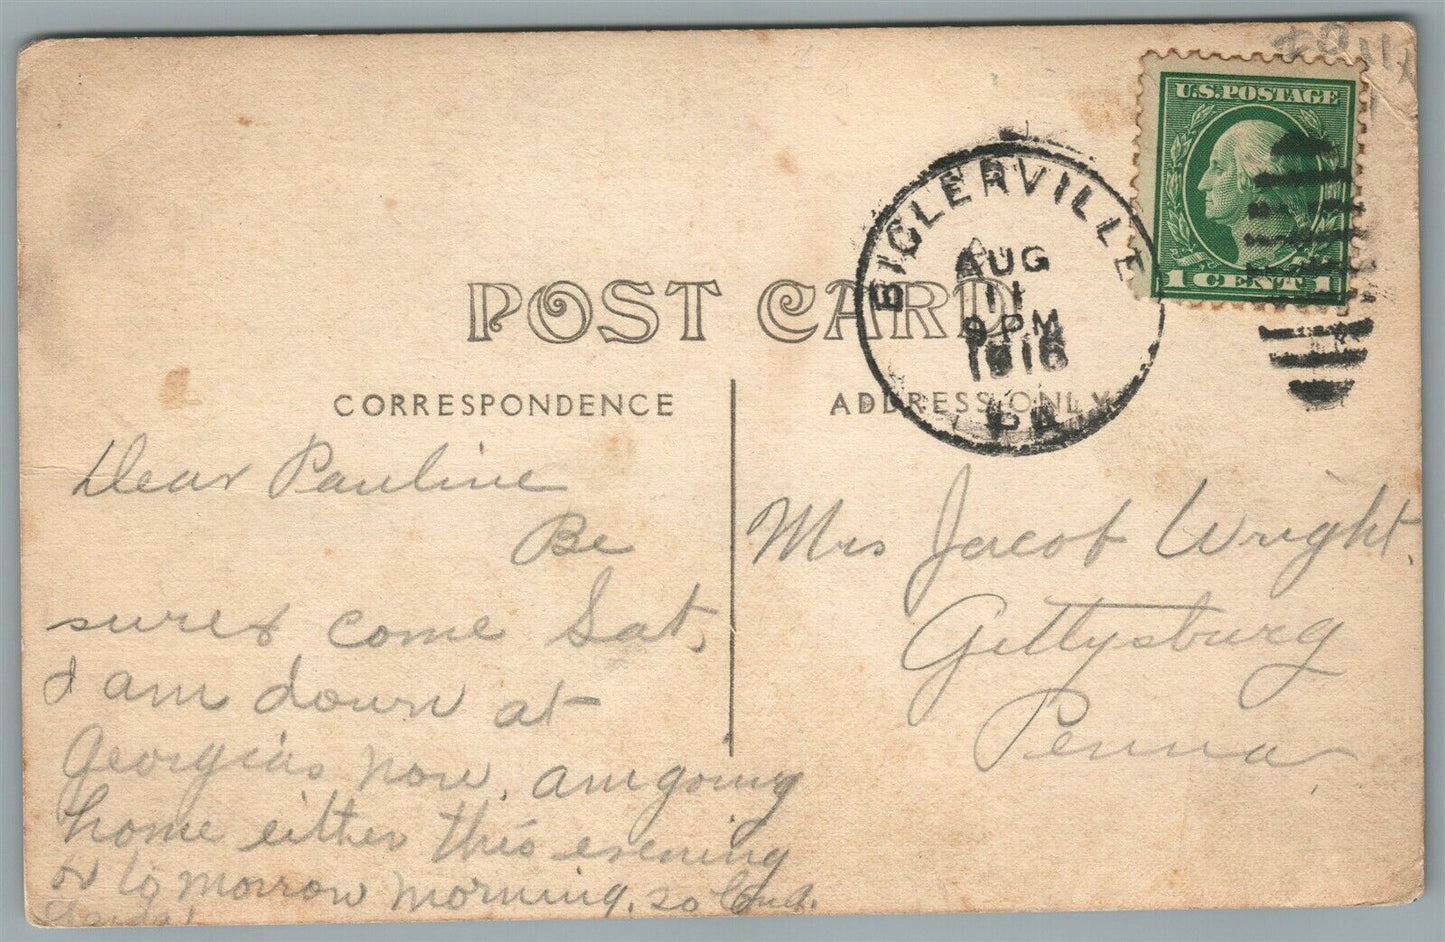 U.S. POSTAGE
1 CENT 1
BIGLERVILLE
AUG
11
9 PM
1916
PA.
POST CARD
CORRESPONDENCE
ADDRESS ONLY
Dear Pauline
Be
sure & come Sat,
I am down at
Georgia's now, am going
home either this evening
or to morrow morning. so
Mrs Jacob Wright,
Gettysburg
Penna